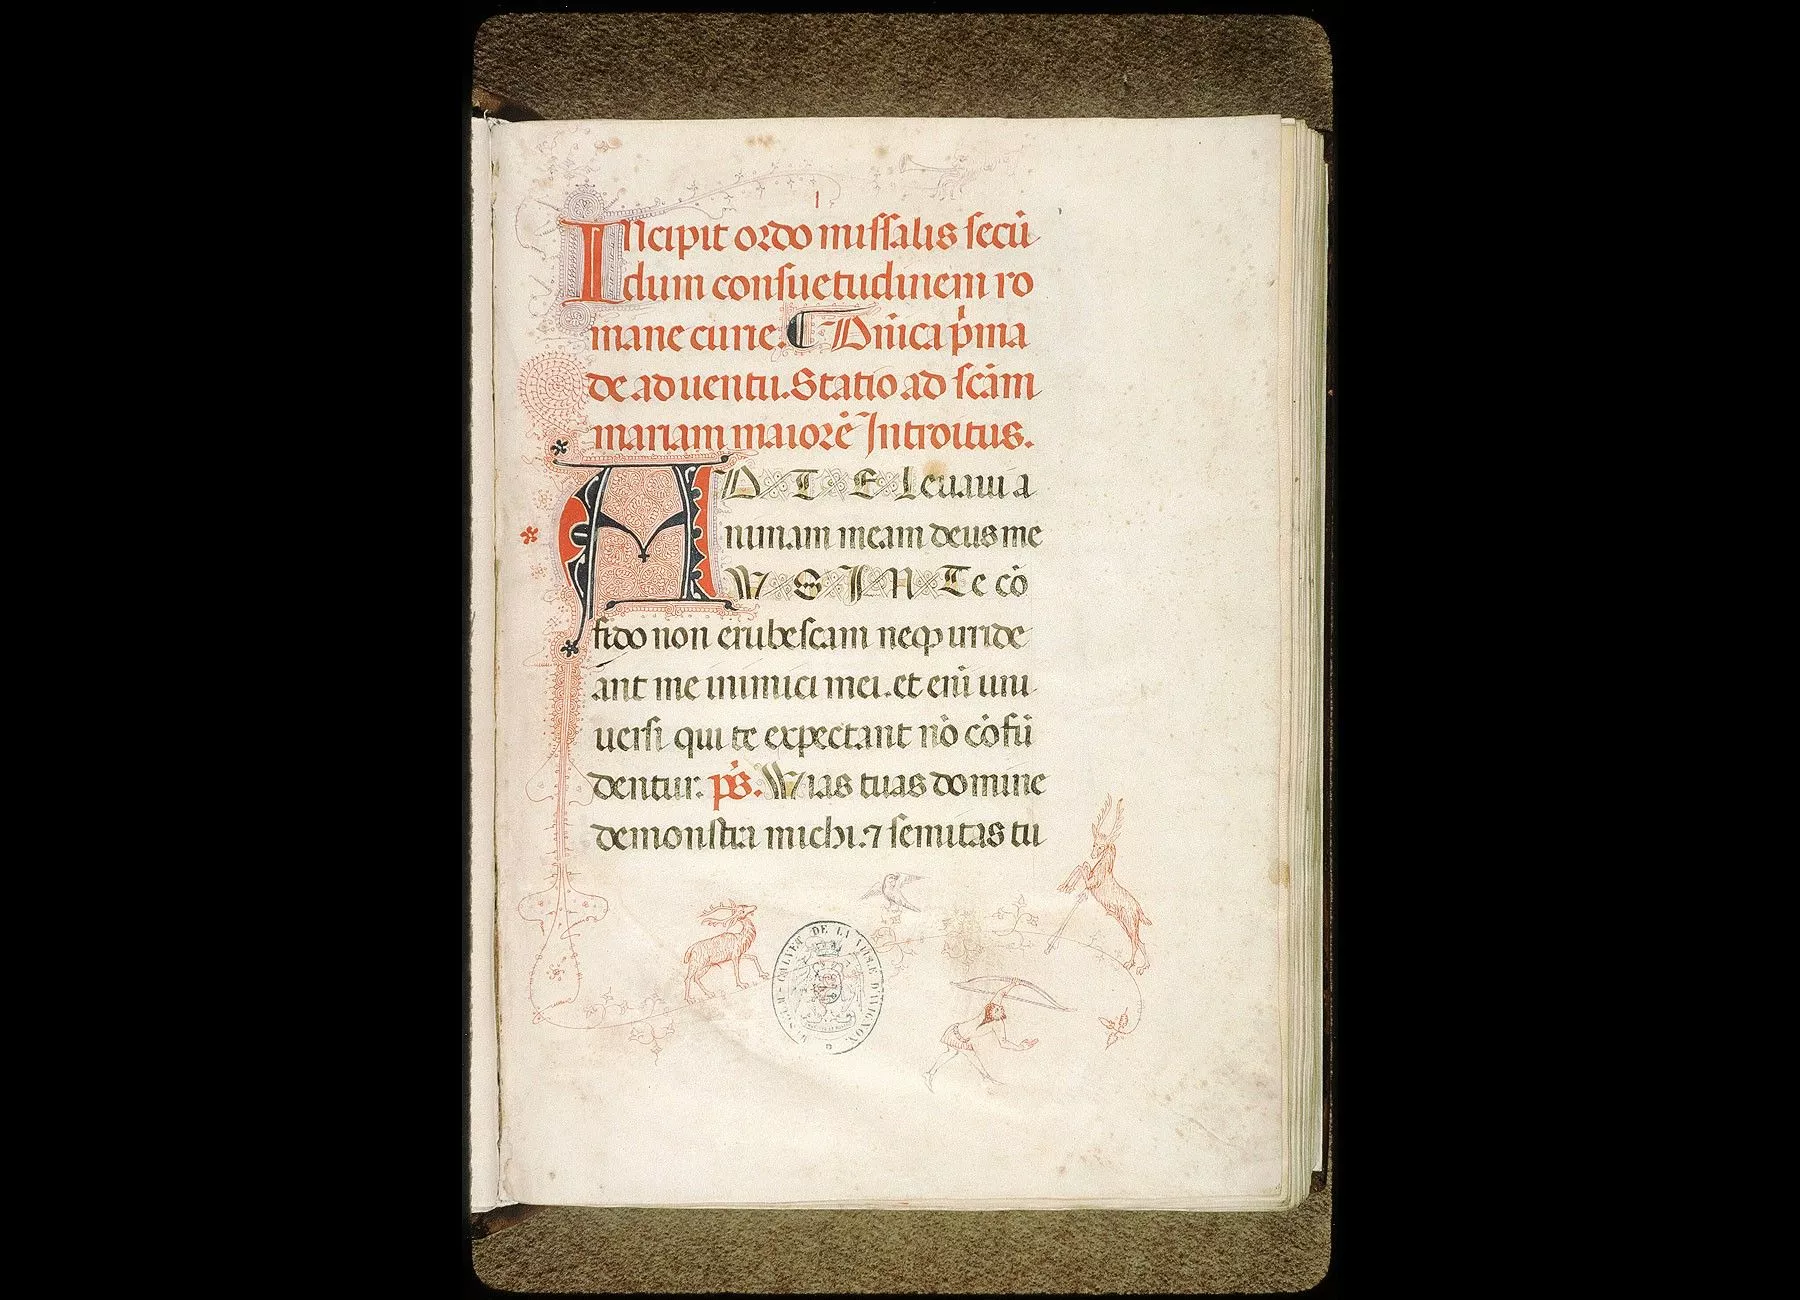 INcipit ordo missalis secū
dum consuetudinem ro
mane curie. Dñica pͥma
de aduentu. Statio ad scām
mariam maiorē Introitus.
AD TE Leuaui a
nimam meam deus me
VS IN Te cō
fido non erubescam neqꝫ irride
ant me inimici mei. et eni᷑ uni
uersi qui te expectant nō cōfū
dentur. ps̄. Vias tuas domine
demonstra michi. ⁊ semitas tu
MUSEUM CALVET DE LA VILLE D'AVIGNON